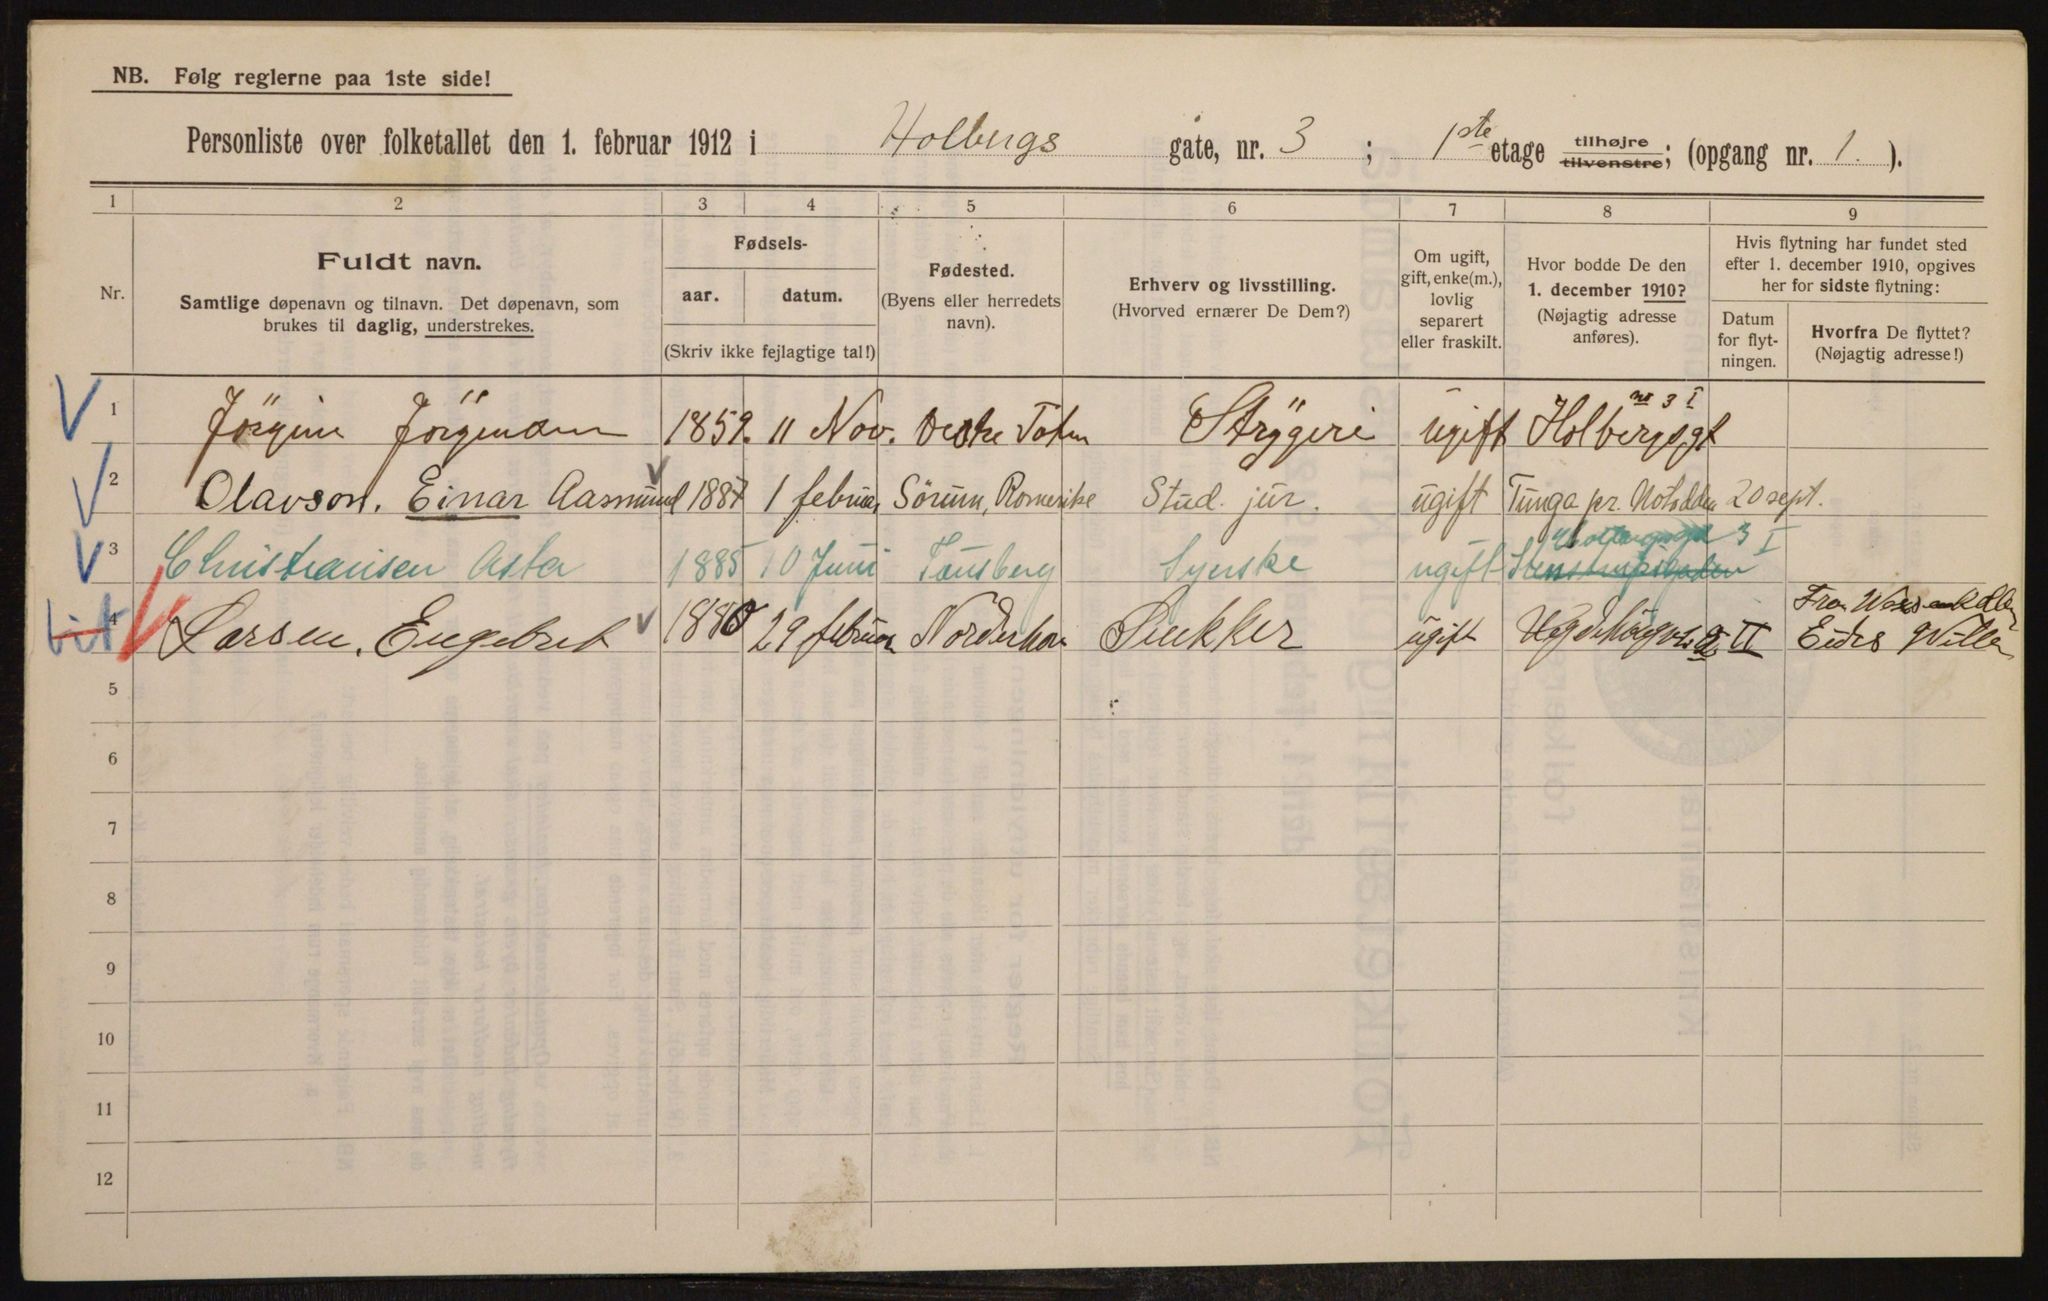 NB. Følg reglerne paa 1ste side!
Personliste over folketallet den 1. februar 1912 i Holbergs gate, nr. 3; 1ste etage tilhøjre tilvenstre; (opgang nr. 1.).
1 2 3 4 5 6 7 8 9
Nr.
Fuldt navn.
Samtlige døpenavn og tilnavn. Det døpenavn, som
brukes til daglig, understrekes.
Fødsels-
aar. datum.
(Skriv ikke fejlagtige tal!)
Fødested.
(Byens eller herredets
navn).
Erhverv og livsstilling.
(Hvorved ernærer De Dem?)
Om ugift,
gift, enke(m.),
lovlig
separert
eller fraskilt.
Hvor bodde De den
1. december 1910?
(Nøjagtig adresse
anføres).
Hvis flytning har fundet sted
efter 1. december 1910, opgives
her for sidste flytning:
Datum
for flyt-
ningen.
Hvorfra De flyttet?
(Nøjagtig adresse!)
no 3 I
1 Jörgine Jörgensen 1859. 11 Nov. Östre Toten Strygeri ugift Holbergsgt
2 Olavson, Einar Aasmund 1887 1 februar Sörum, Romerike Stud. jur. ugift Tunga pr. Notodden 20 sept.
Holbergsgt 3 I
3 Christiansen Asta 1885 10 Juni Tønsberg Syerske ugift Stenstrupsgaden
Fra
4 Larsen, Engebret 1880 29 februar Norderhov Snekker ugift Hegdehaugsv. II Eids Villa
5
6
7
8
9
10
11
12